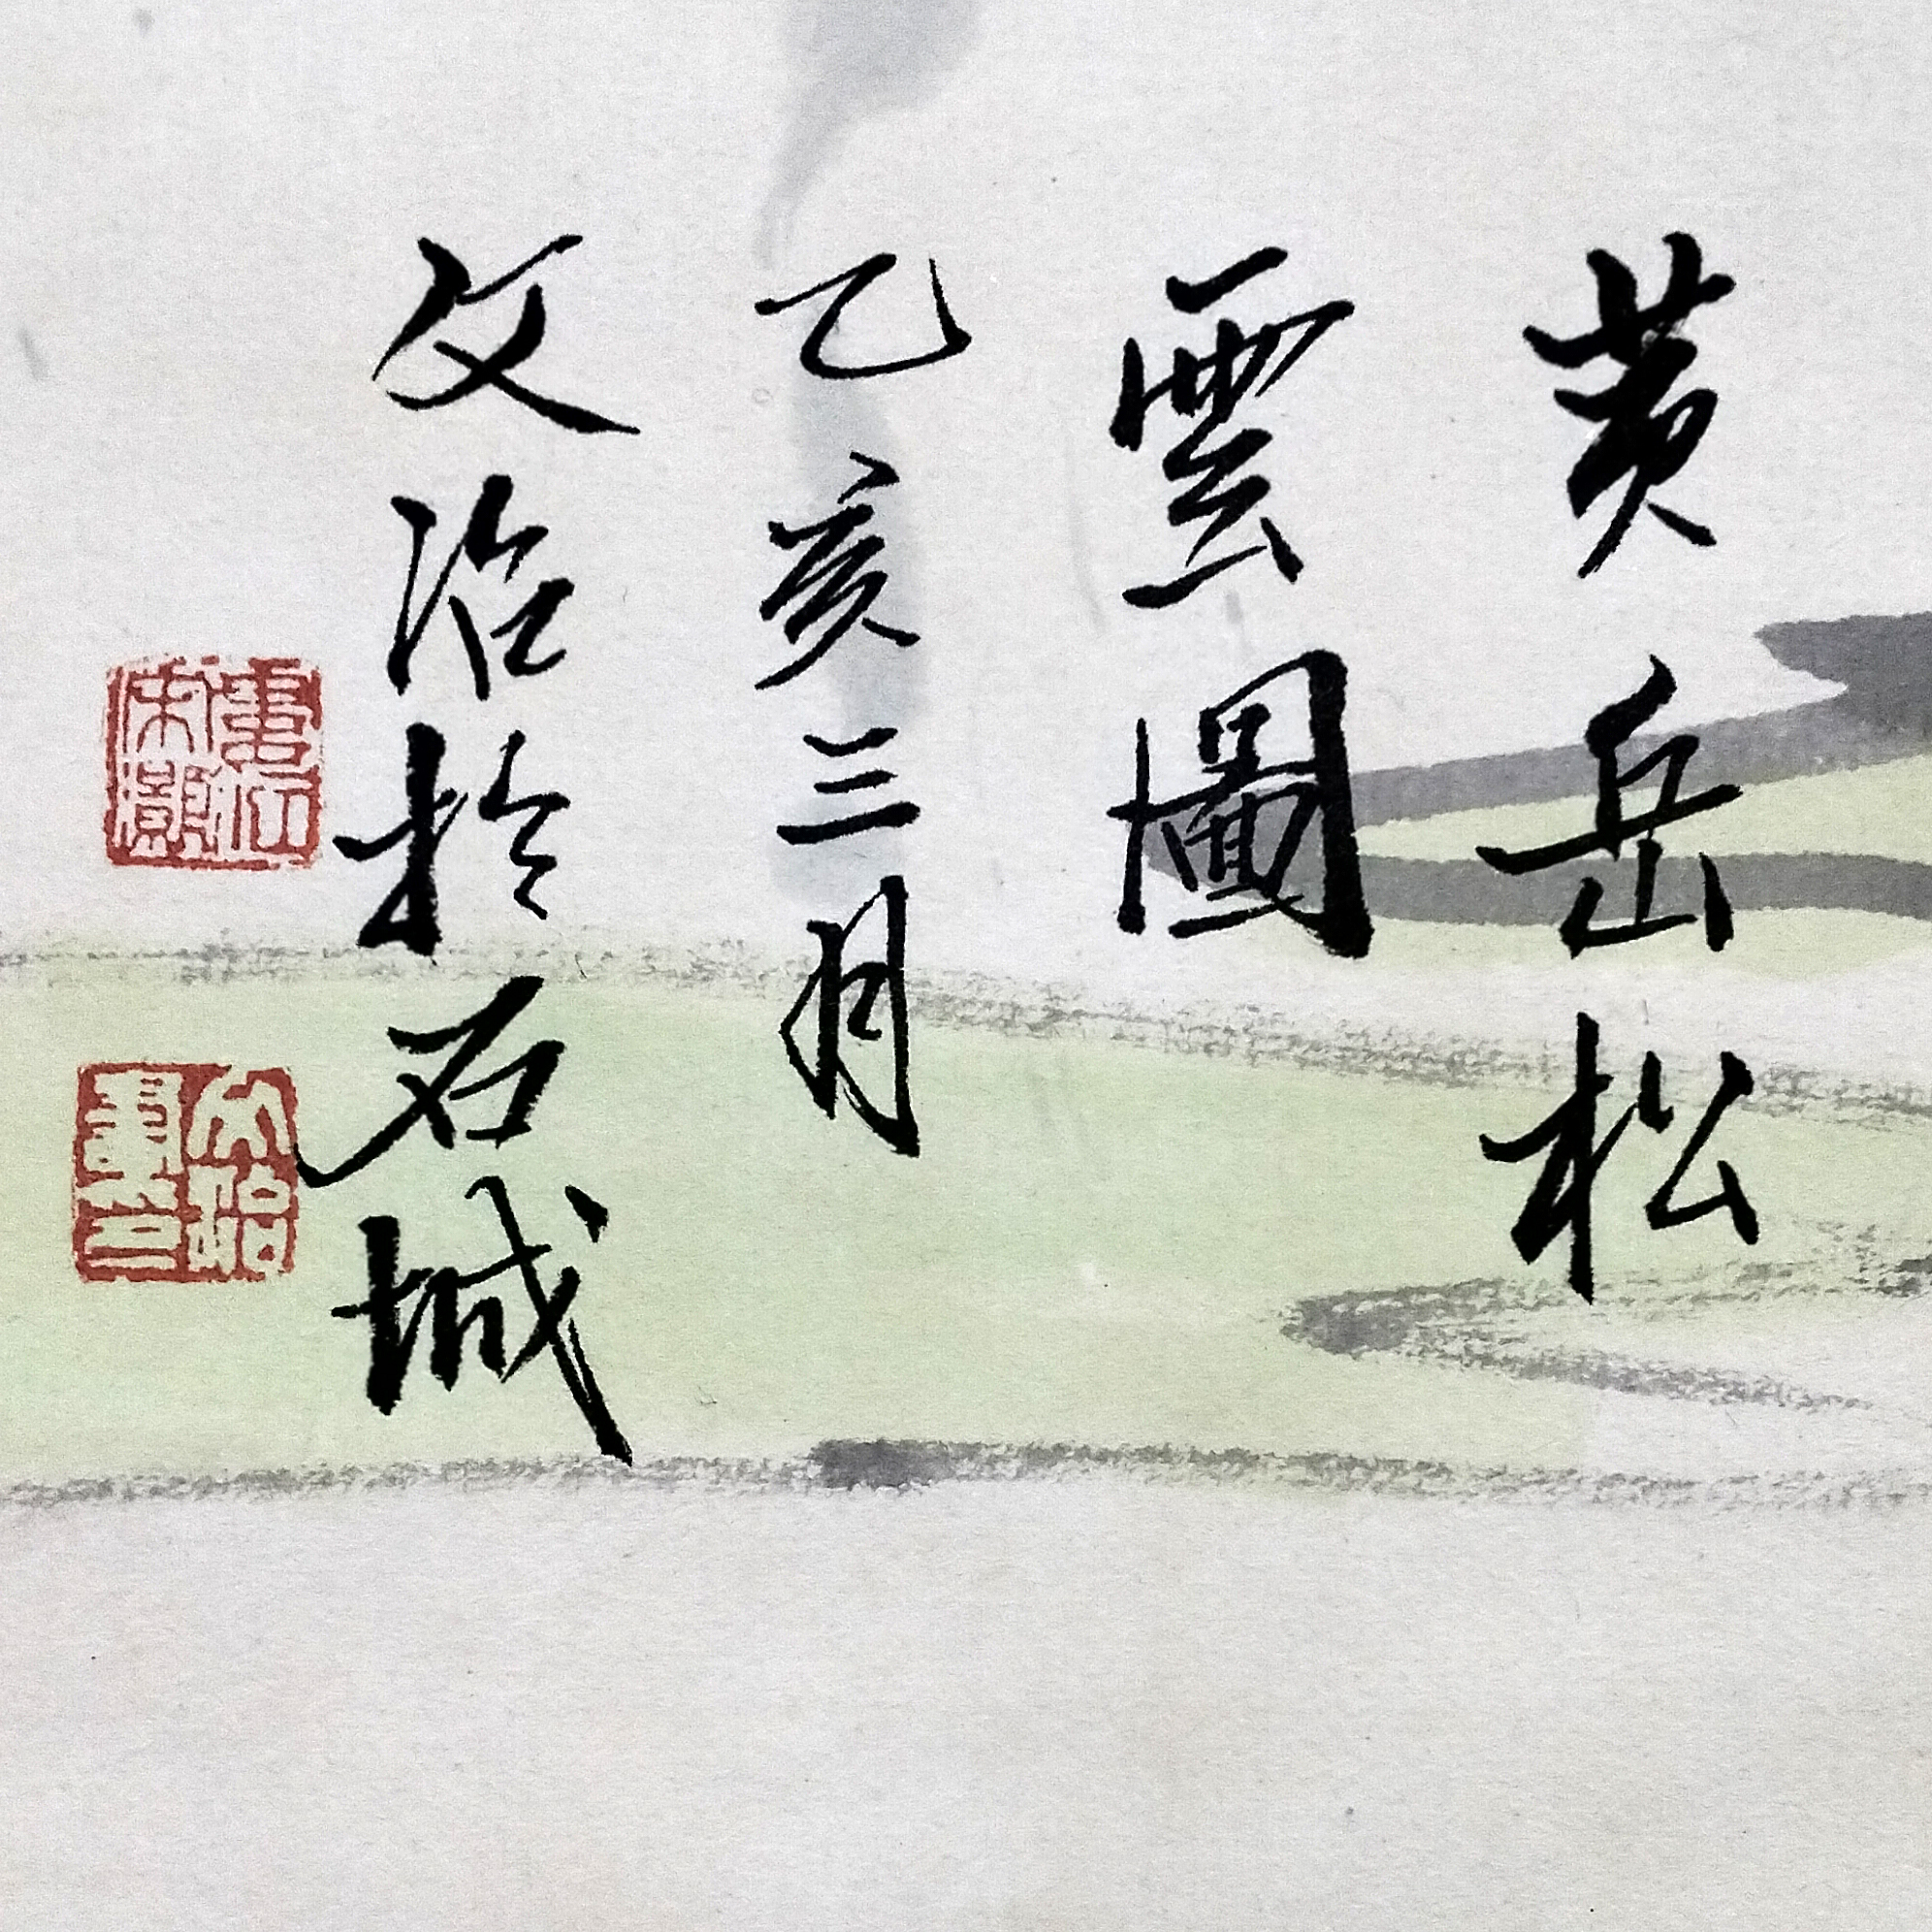 黄岳松
雲圖
乙亥三月
文治於石城